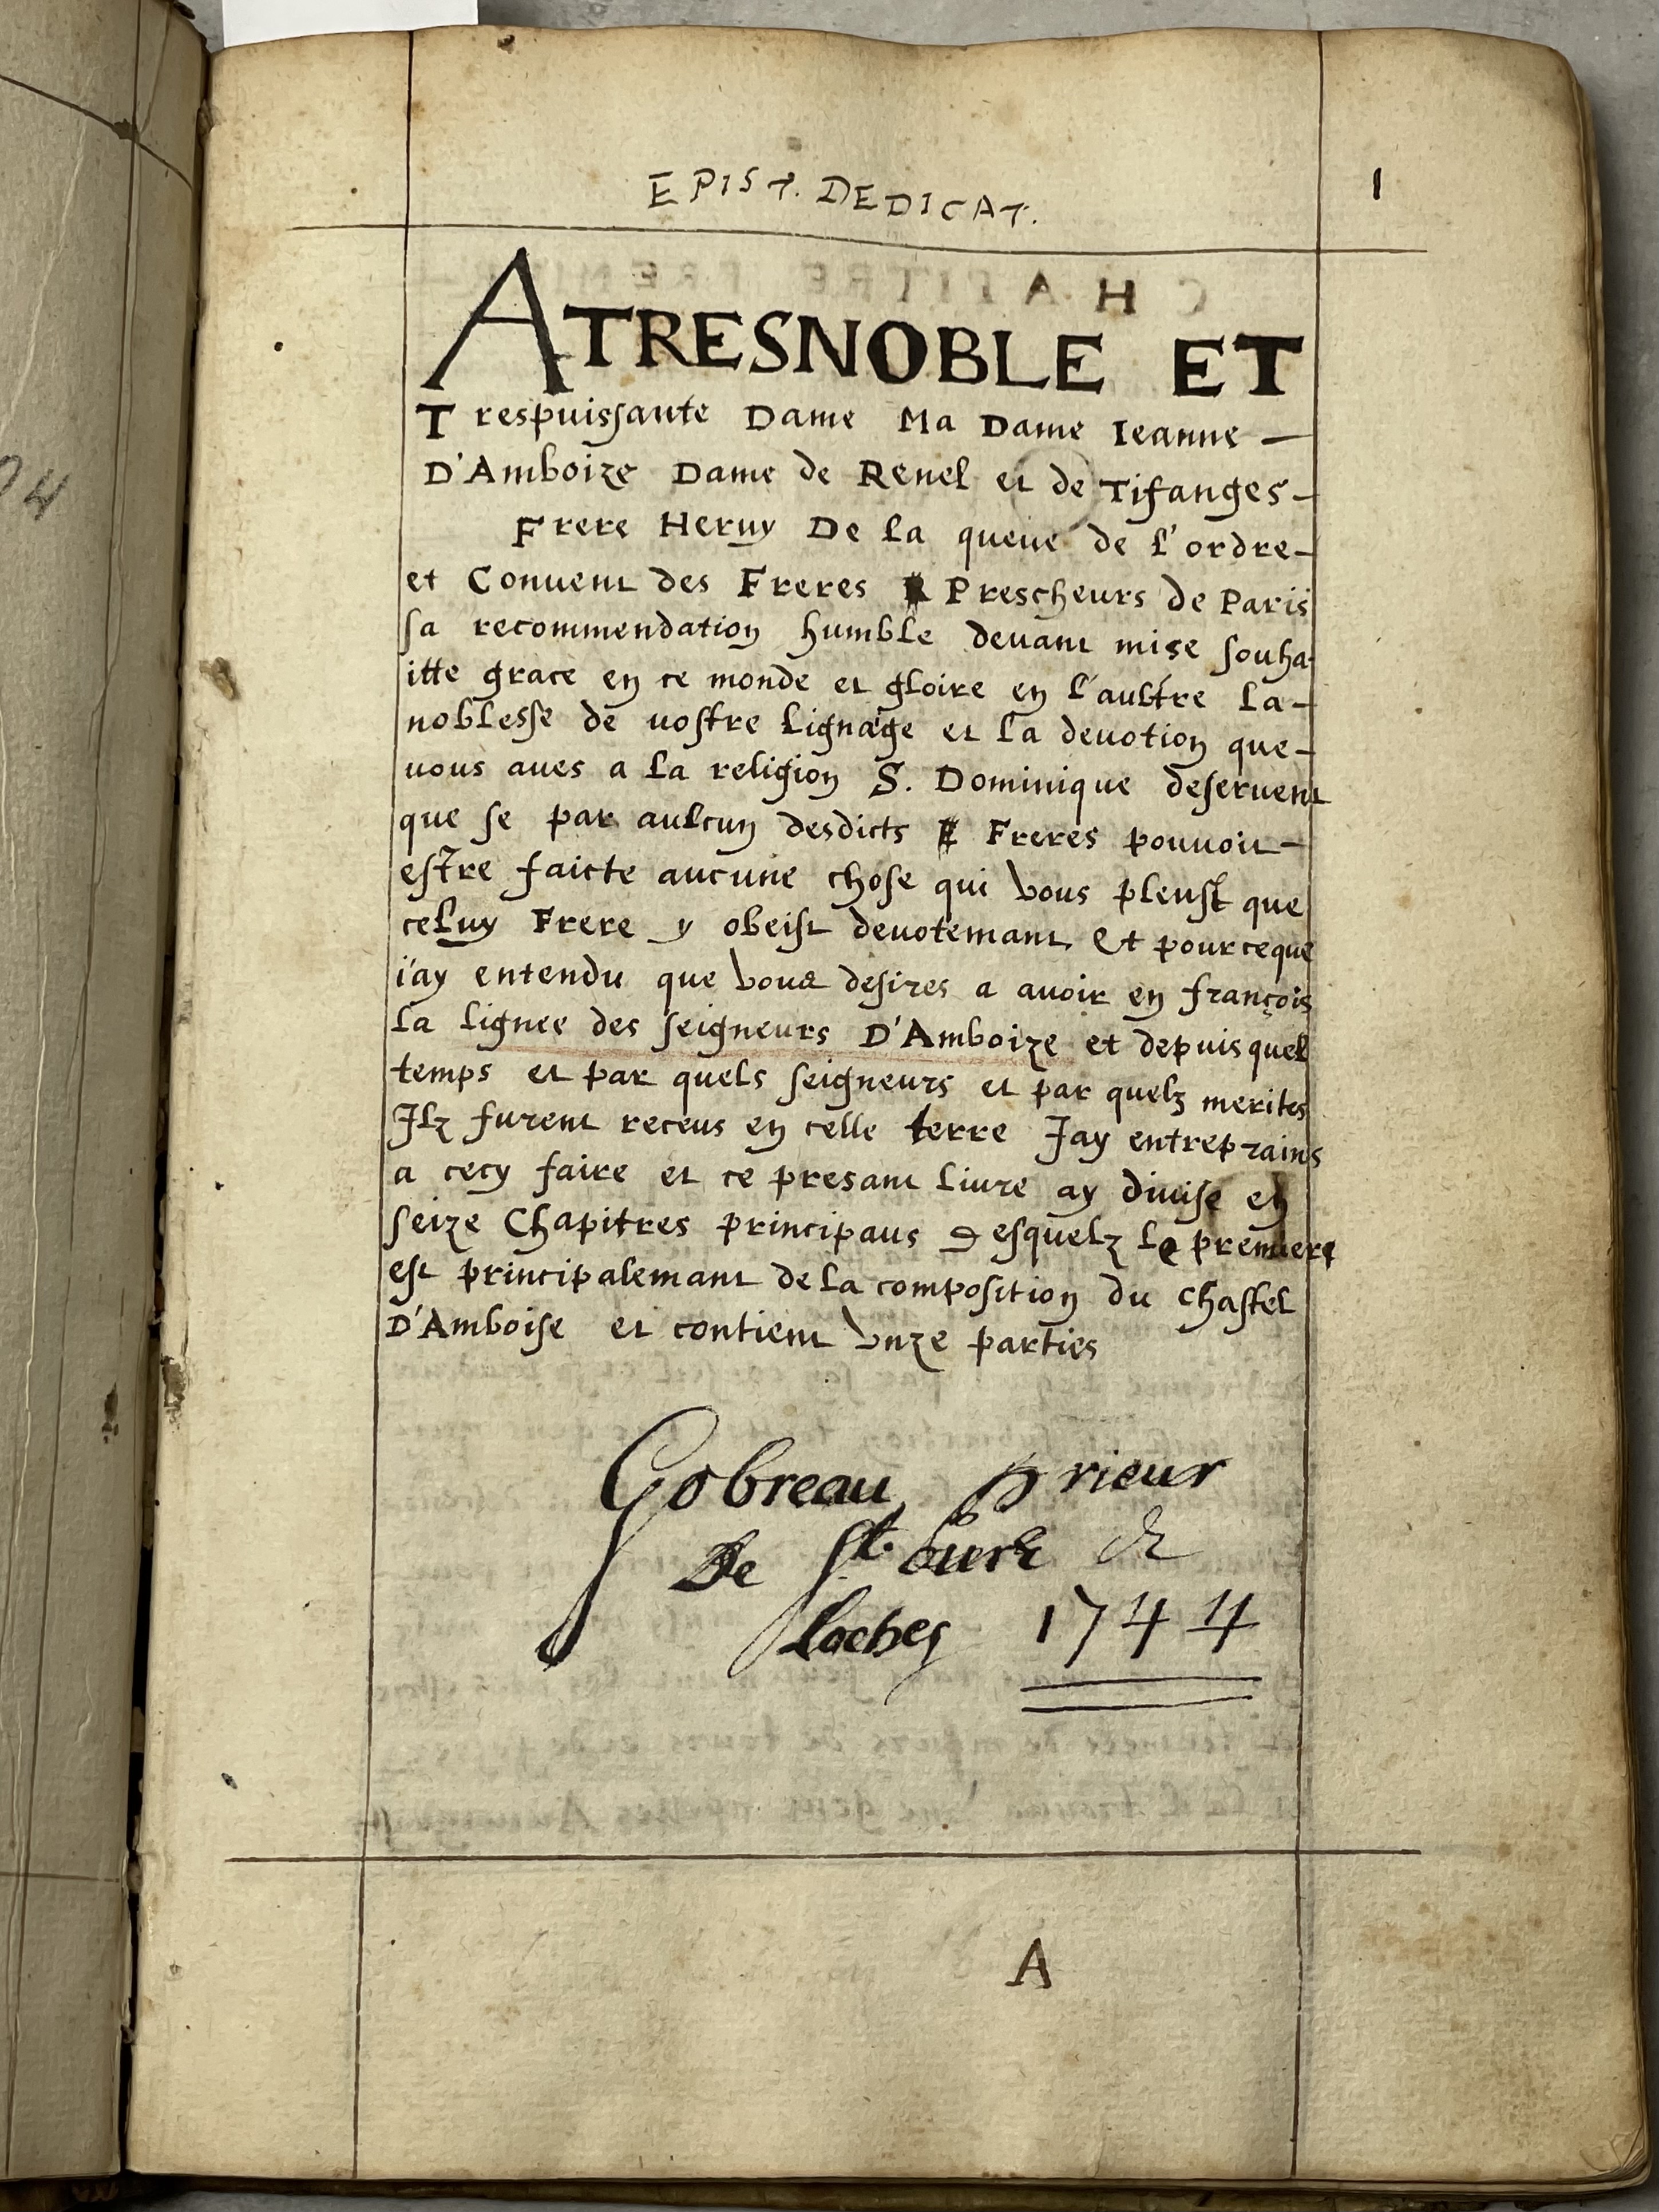 EPIST. DEDICAT.
1
A TRESNOBLE ET
Trespuissante Dame Ma Dame Ieanne —
D'Amboize Dame de Renel et de Tifanges —
Frere Heruy De la queue de l'ordre —
et Conuent des Freres Prescheurs de Paris
sa recommendation humble deuant mise souha-
itte grace en ce monde et gloire en l'aultre la —
noblesse de vostre lignage et la deuotion que —
uous aues a la religion S. Dominique deseruent
que se par aulcun desdicts Freres pouuoit —
estre faicte aucune chose qui vous pleust que
celuy Frere y obeist deuotemant Et pource que
i'ay entendu que vous desires a auoir en françois
la lignee des seigneurs D'Amboize et depuis quel
temps et par quels seigneurs et par quelz merites
Ilz furent receus en celle terre Jay entreprains
a cecy faire et ce presant liure ay diuise en
seize Chapitres principaus Desquelz le premiere
est principalemant de la composition du chastel
D'Amboise et contient vnze parties
Gobreau, prieur
De St. ours de
Loches 1744
A